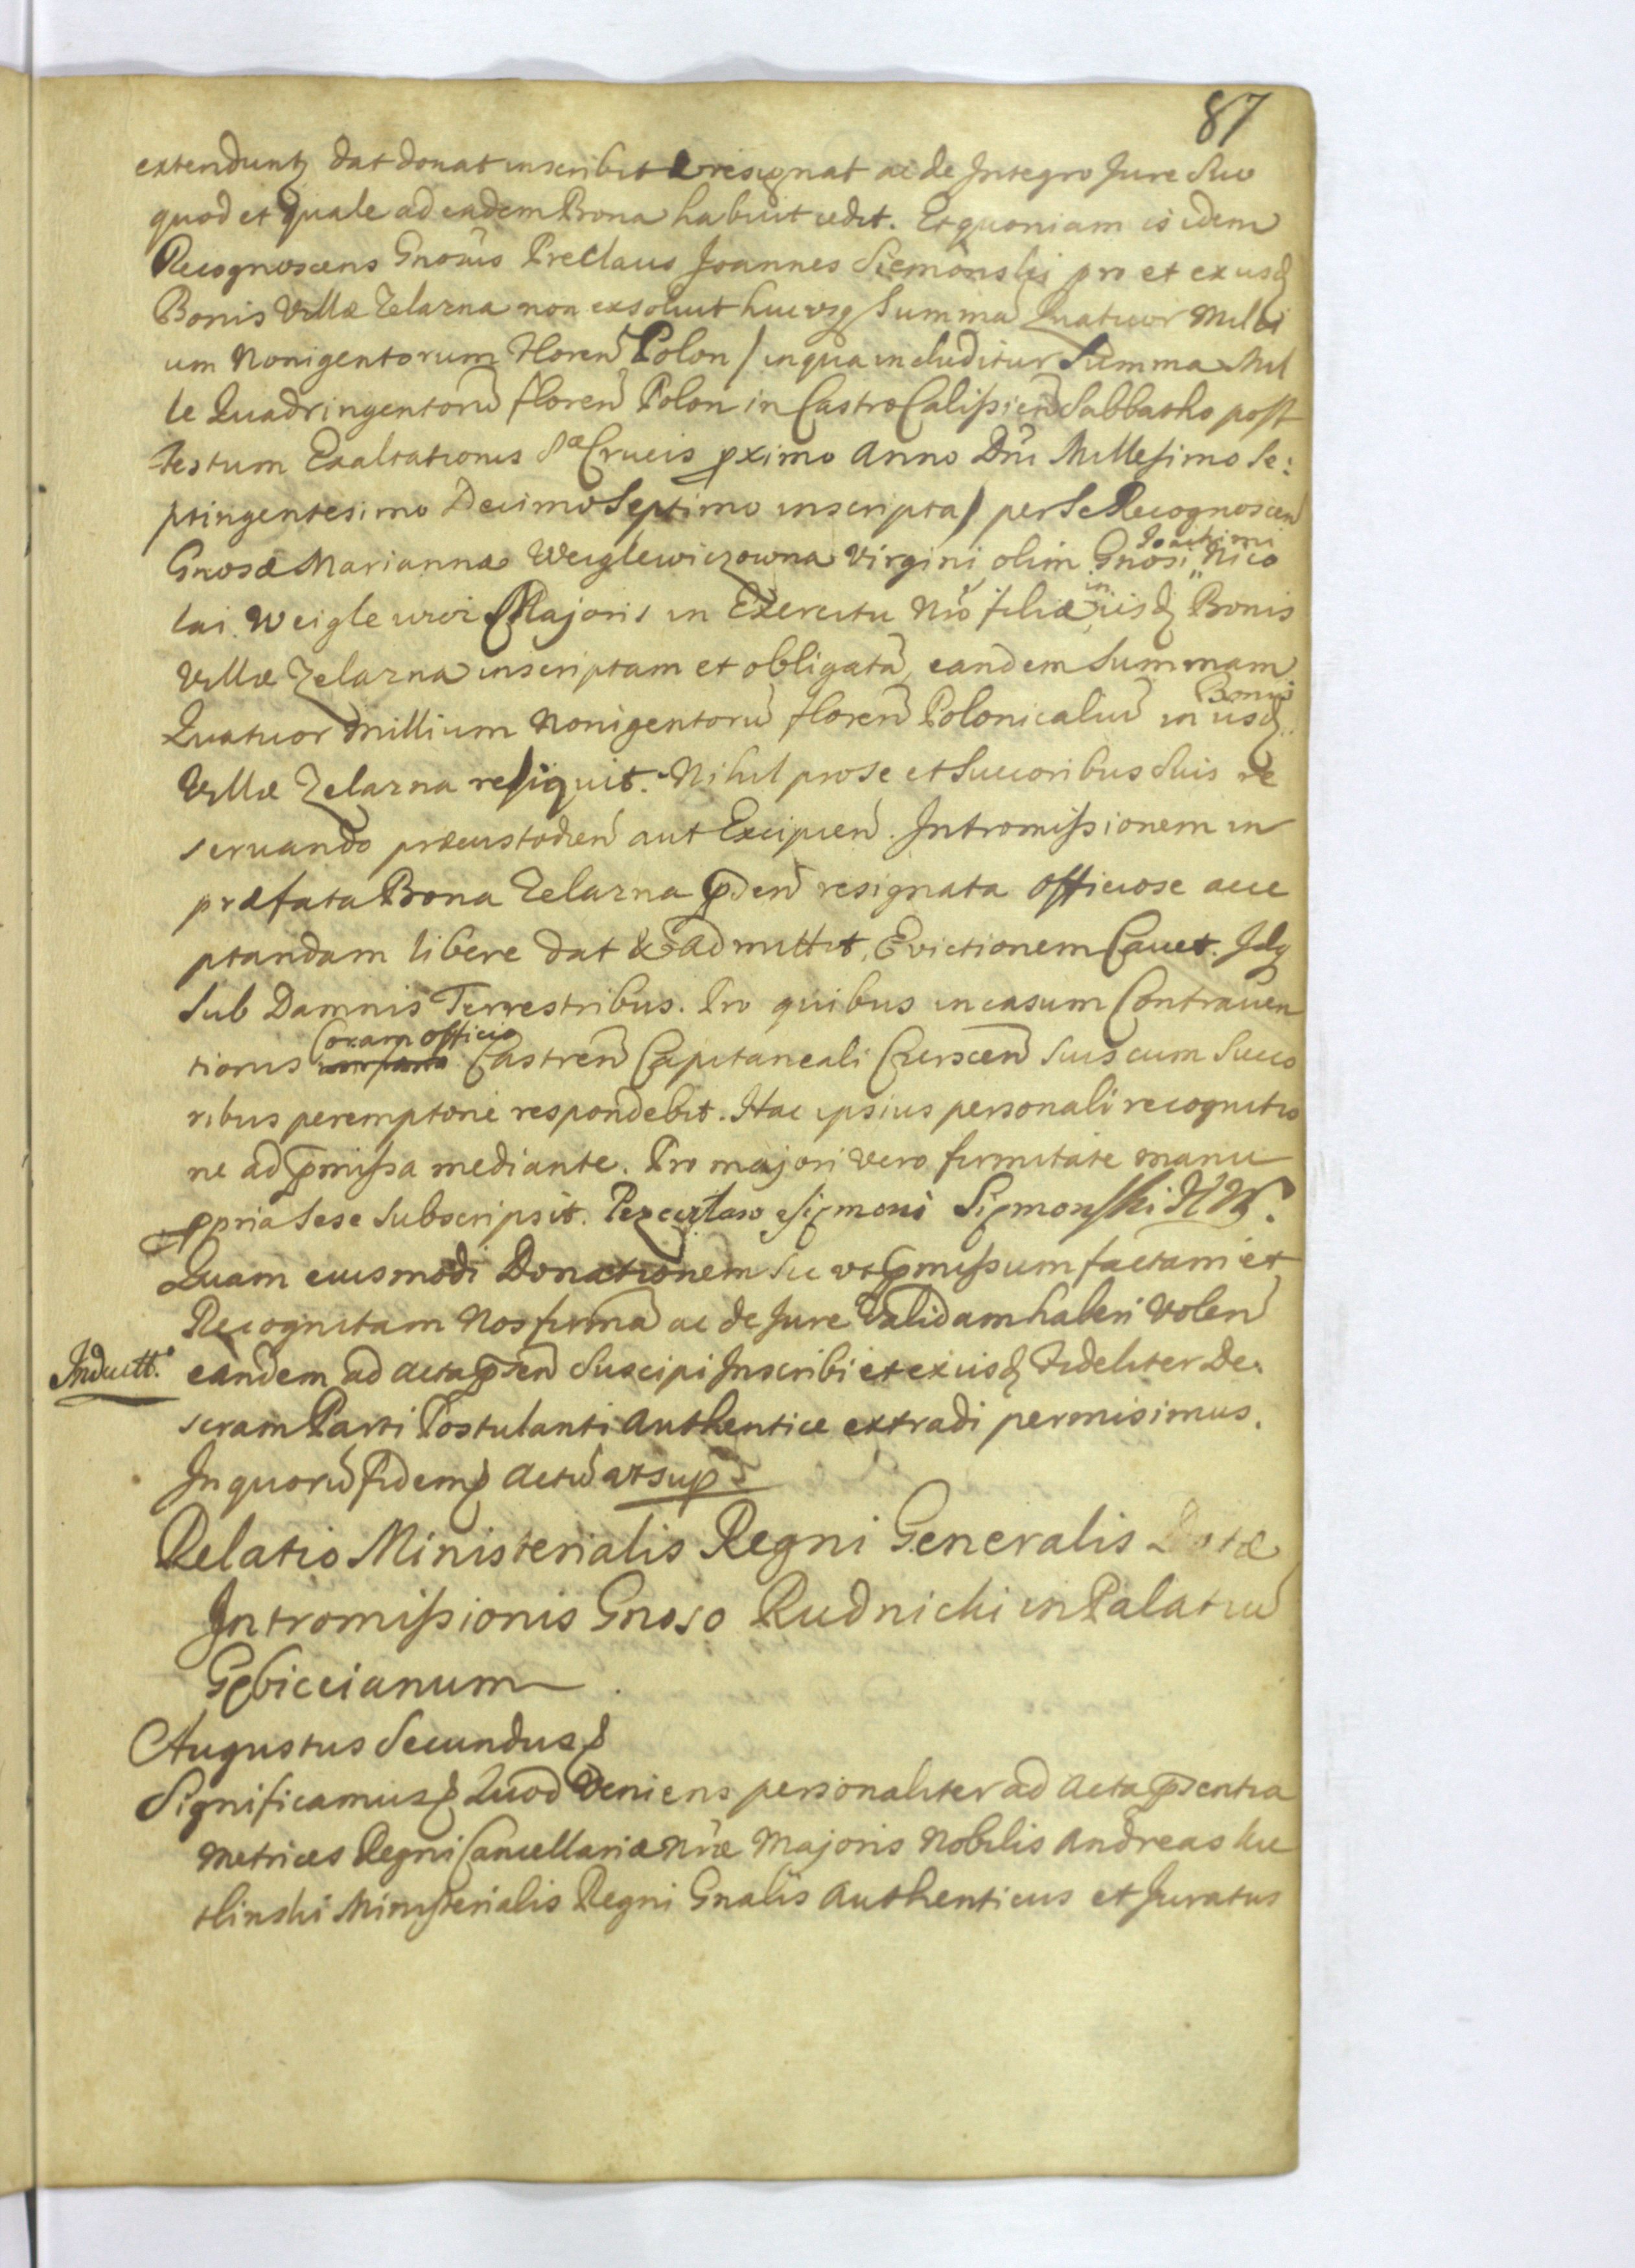 87
extendunt, dat donat inscribit & resignat ac de Integro Jure Suo
quod et quale ad eadem Bona habuit cedit. Et quoniam is idem
Recognoscens Gnosus Preclaus Joannes Siemonski pro et ex iisd
Bonis Villæ Zelazna non exsoluit hucusq Summã Quatuor Milli
um Nonigentorum Floreñ Polon / in qua includitur Summa Mil
le Quadringentorũ floreñ Polon in Castro Calissieñ Sabbatho post
Festum Exaltationis Sæ Crucis pximo Anno Dni Millesimo Se:
ptingentesimo Decimo Septimo inscripta / per Se Recognosceñ
Gnosæ Mariannæ Weiglewiczowna Virgini, olim Gnosi Joachimi Nico
lai Weiglewicz Majoris in Exercitu Nro filiæ, in iisd Bonis
Villæ Zelazna inscriptam et obligatã, eandem Summam
Quatuor Millium Nonigentorũ floreñ Polonicaliũ in iisd Bonis
Villæ Zelazna reliquit. Nihil pro se et Succoribus Suis re
servando præcustodieñ aut Excipieñ. Intromissionem in
præfata Bona Zelazna pdeñ resignata officiose acce
ptandam libere dat & admittit, Evictionem Cauet. Idq
Sub Damnis Terrestribus. Pro quibus in casum Contrauen
tionis Coram officio Castreñ Capitaneali Cerseñ Suis cum Succo
ribus peremptorie respondebit. Hac ipsius personali recognitio
ne ad pmissa mediante. Pro majori vero firmitate manu
ppria Sese Subscripsit. Siemonski
Quam eiusmodi Donationem Sic ut pmissum factam et
Recognitam Nos firmã ac de Jure Validam haberi Voleñ
Induct. eandem ad acta pseñ Suscipi Inscribi et ex iisd Fideliter De:
scram Parti Postulanti Authentice extradi permisimus.
In quorũ fidem Actũ ut sup
Relatio Ministerialis Regni Generalis Datæ
Intromissionis Gnoso Rudnicki in Palatiũ
Gębiccianum
Augustus Secundus
Significamus Quod Veniens personaliter ad Acta psentia
Metrices Regni Cancellariæ Nræ Majoris Nobilis Andreas Ku
tlinski Ministerialis Regni Gnalis Authenticus et Juratus